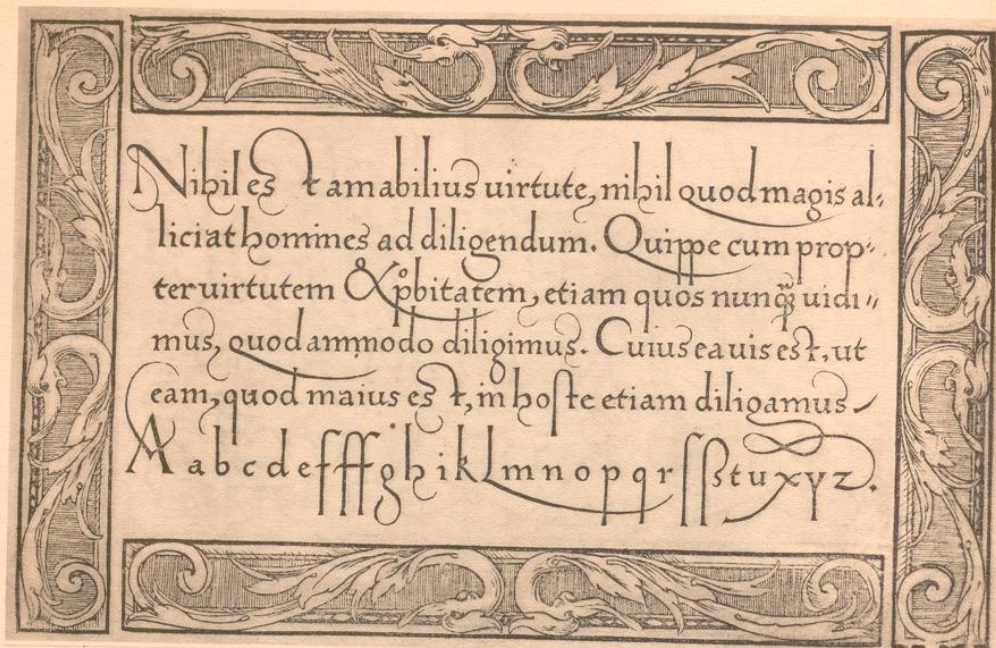 Nihil est amabilius uirtute, nihil quod magis al,,
liciat homines ad diligendum. Quippe cum prop,,
ter uirtutem & p̊bitatem, etiam quos nunq̃ uidi,,
mus, quodammodo diligimus. Cuius ea uis est, ut
eam, quod maius est, in hoste etiam diligamus
A a b c d e f ff g h i k l m n o p q r ſ ſſ s t u x y z.